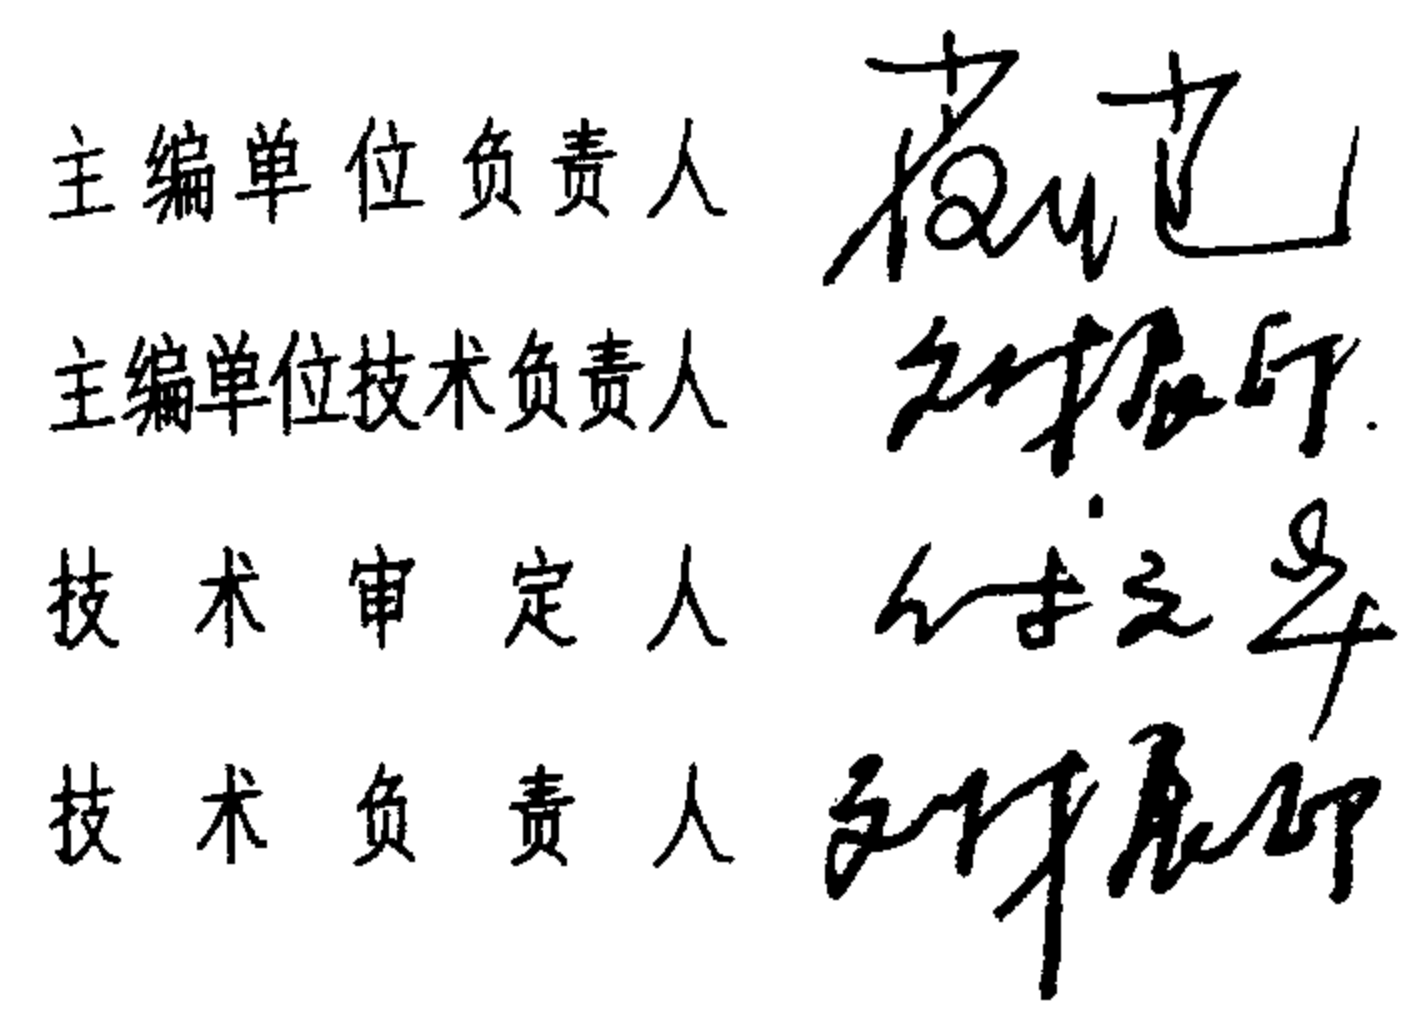 主编单位负责人
主编单位技术负责人 刘振印
技术审定人
技术负责人 刘振印